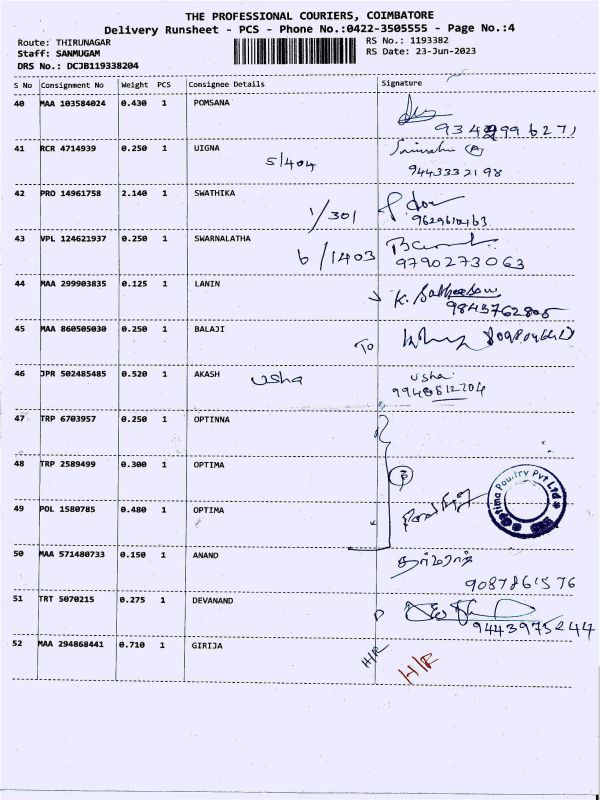 THE PROFESSIONAL COURIERS, COIMBATORE
Delivery Runsheet - PCS - Phone No.:0422-3505555 - Page No.:4
Route: THIRUNAGAR
RS No.: 1193382
Staff: SANMUGAM
RS Date: 23-Jun-2023
DRS No.: DCJB119338204
S No Consignment No Weight PCS Consignee Details Signature
40 MAA 103584024 0.430 1 POMSANA
41 RCR 4714939 0.250 1 UIGNA
5/404
9443332198
42 PRO 14961758 2.140 1 SWATHIKA
1/301
9629610463
43 VPL 124621937 0.250 1 SWARNALATHA
6/1403
9790273063
44 MAA 299903835 0.125 1 LANIN
9843762805
45 MAA 860505030 0.250 1 BALAJI
To
46 JPR 502485485 0.520 1 AKASH
usha
usha
47 TRP 6703957 0.250 1 OPTINNA
48 TRP 2589499 0.300 1 OPTIMA
3
Optima Poultry Pvt Ltd
49 POL 1580785 0.480 1 OPTIMA
50 MAA 571480733 0.150 1 ANAND
9087861576
51 TRT 5070215 0.275 1 DEVANAND
9443975244
52 MAA 294868441 0.710 1 GIRIJA